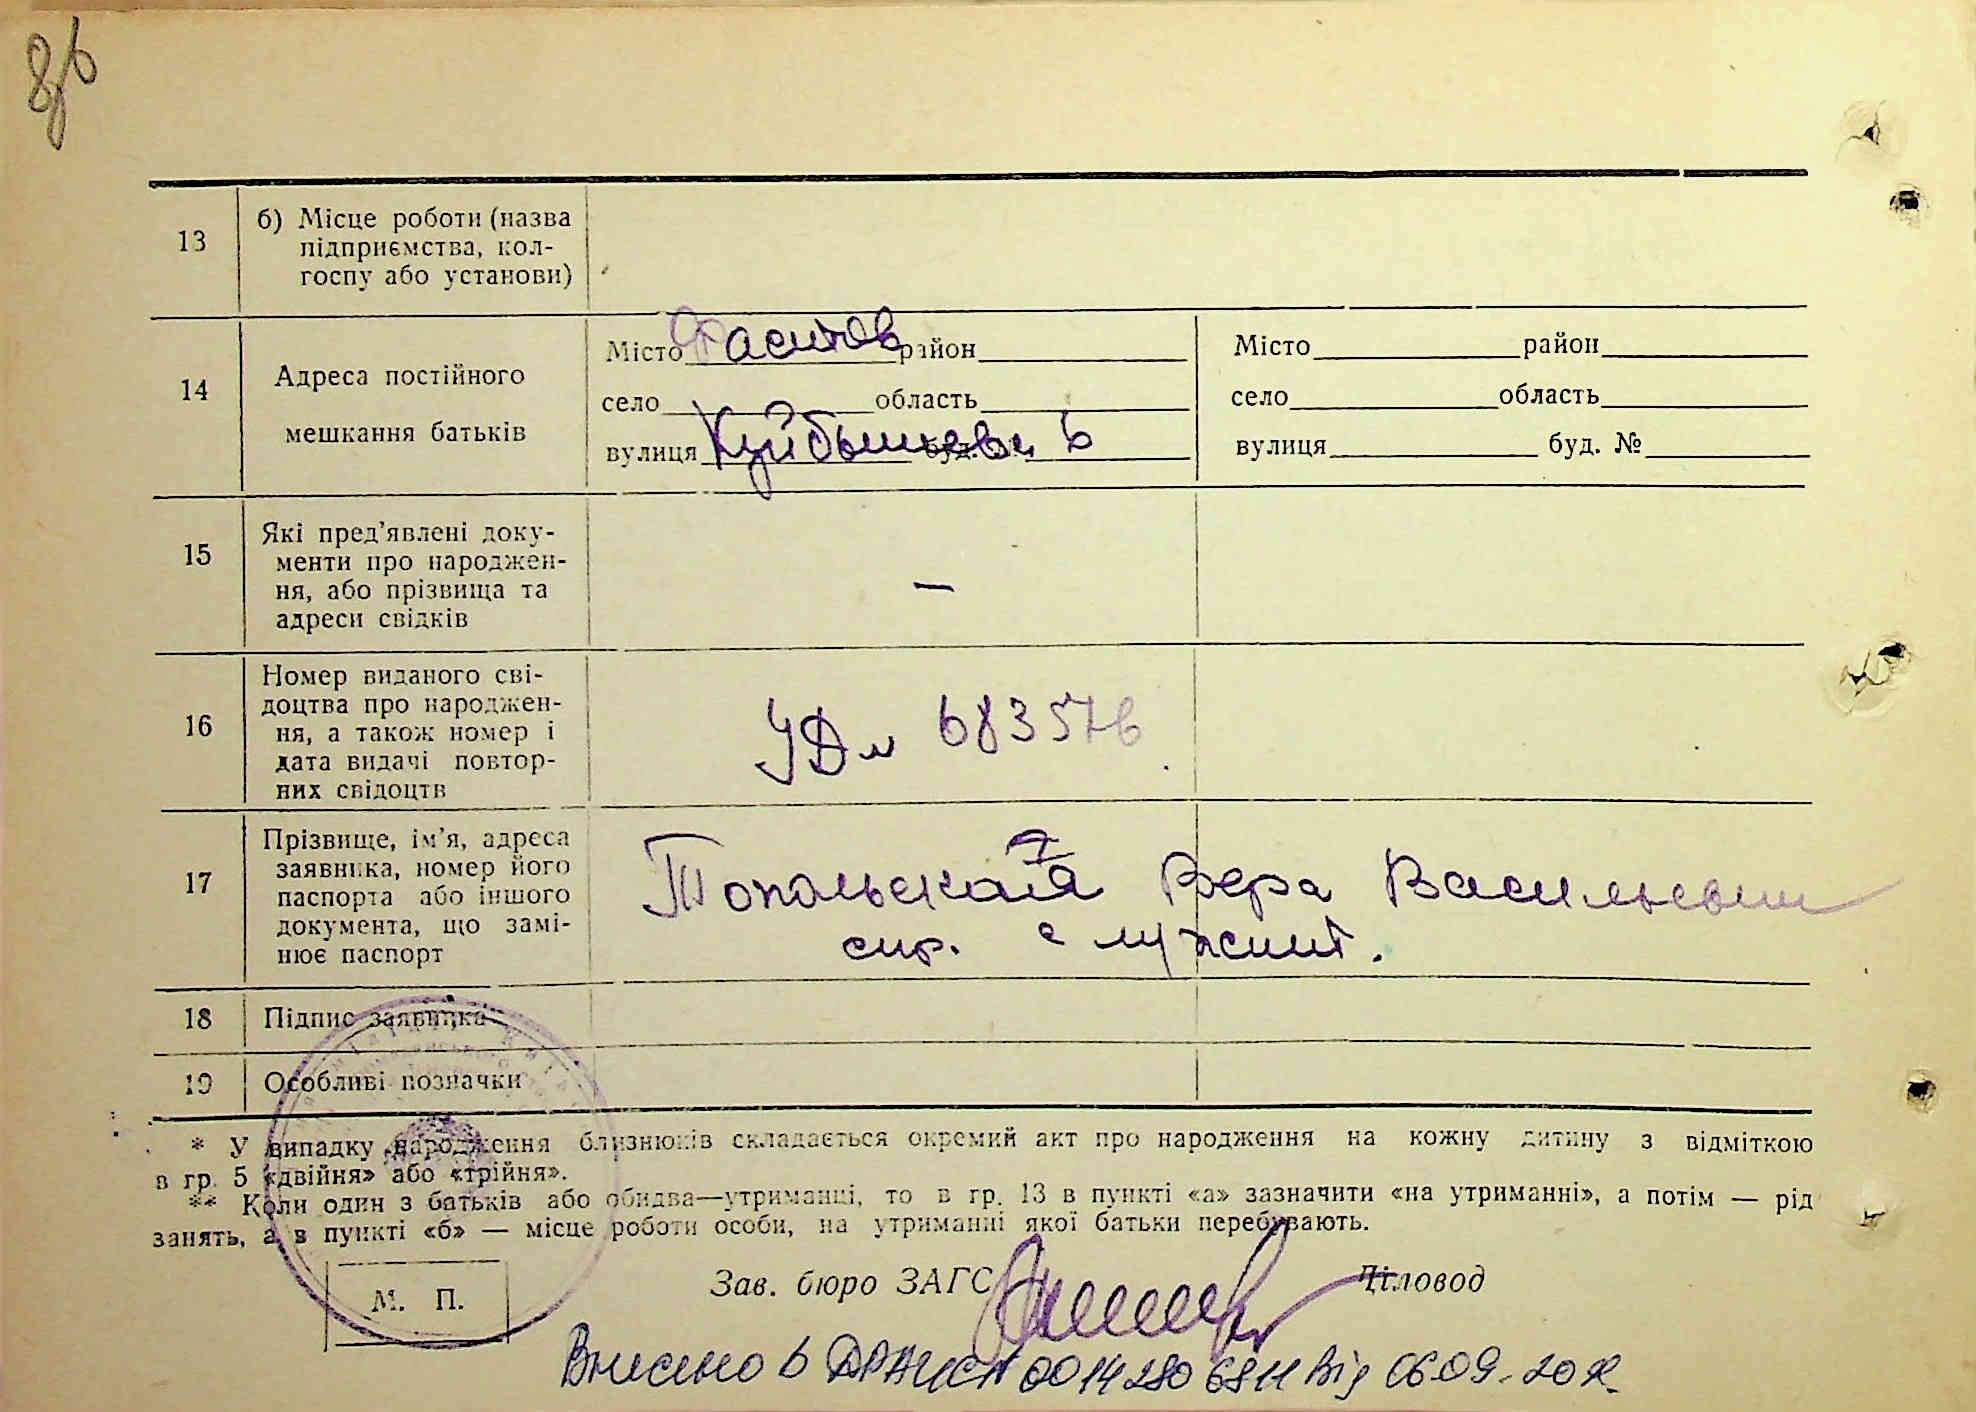 13
б) Місце роботи (назва
підприємства, кол-
госпу або установи)
14
Адреса постійного
мешкання батьків
Місто Фастов район
село область
вулиця Куйбышева буд. № 6
Місто район
село область
вулиця буд. №
15
Які пред'явлені доку-
менти про народжен-
ня, або прізвища та
адреси свідків
—
16
Номер виданого сві-
доцтва про народжен-
ня, а також номер і
дата видачі повтор-
них свідоцтв
683576
17
Прізвище, ім'я, адреса
заявника, номер його
паспорта або іншого
документа, що замі-
нює паспорт
Топольская Вера Васильевна
18
Підпис заявника
19
Особливі позначки
* У випадку народження близнюків складається окремий акт про народження на кожну дитину з відміткою
в гр. 5 «двійня» або «трійня».
** Коли один з батьків або обидва—утриманці, то в гр. 13 в пункті «а» зазначити «на утриманні», а потім — рід
занять, а в пункті «б» — місце роботи особи, на утриманні якої батьки перебувають.
М. П.
Зав. бюро ЗАГС
Діловод
Внесено в ДРАЦСГ 00142806811 від 06.09.20 р.